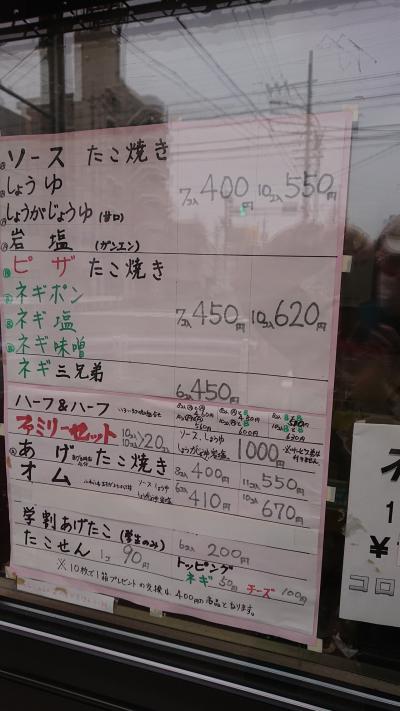 ソース たこ焼き
しょうゆ 7コ入 400円 10コ入 550円
しょうがじょうゆ (甘口)
岩塩 (ガンエン)
ピザ たこ焼き
ネギポン
ネギ塩 7コ入 450円 10コ入 620円
ネギ味噌
ネギ三兄弟 6コ入 450円
ハーフ&ハーフ
ファミリーセット 10コ入 10コ入 >20コ ソース、しょうゆ 1000円
あげたこ焼き 8コ入 400円 11コ入 550円
オム ソース しょうゆ 6コ入 410円 10コ入 670円
学割あげたこ (学生のみ) 6コ入 200円
たこせん 1コ 90円 トッピング
ネギ 50円 チーズ 100円
※10枚で1箱プレゼントの交換は、400円の商品となります。
ネ
1
¥
コロ